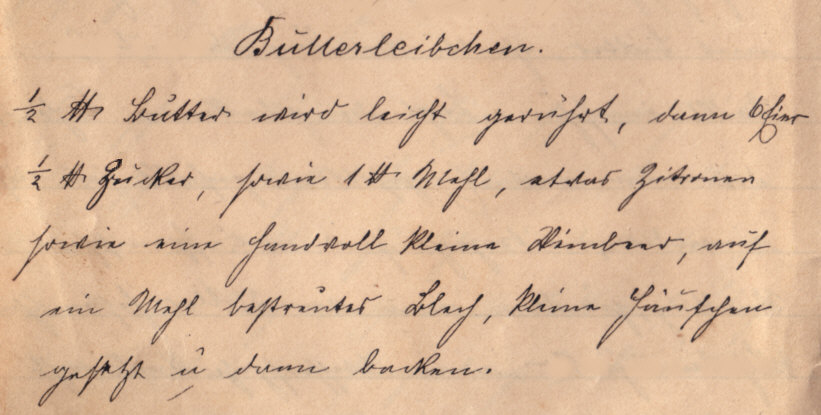 Butterleibchen.
½ ℔ Butter wird leicht gerührt, dann 6 Eier
½ ℔ Zucker, sowie 1 ℔ Mehl, etwas Zitronen
sowie eine Handvoll kleine, auf
ein Mehl bestreutes Blech, kleine Häufchen
gesetzt u dann backen.